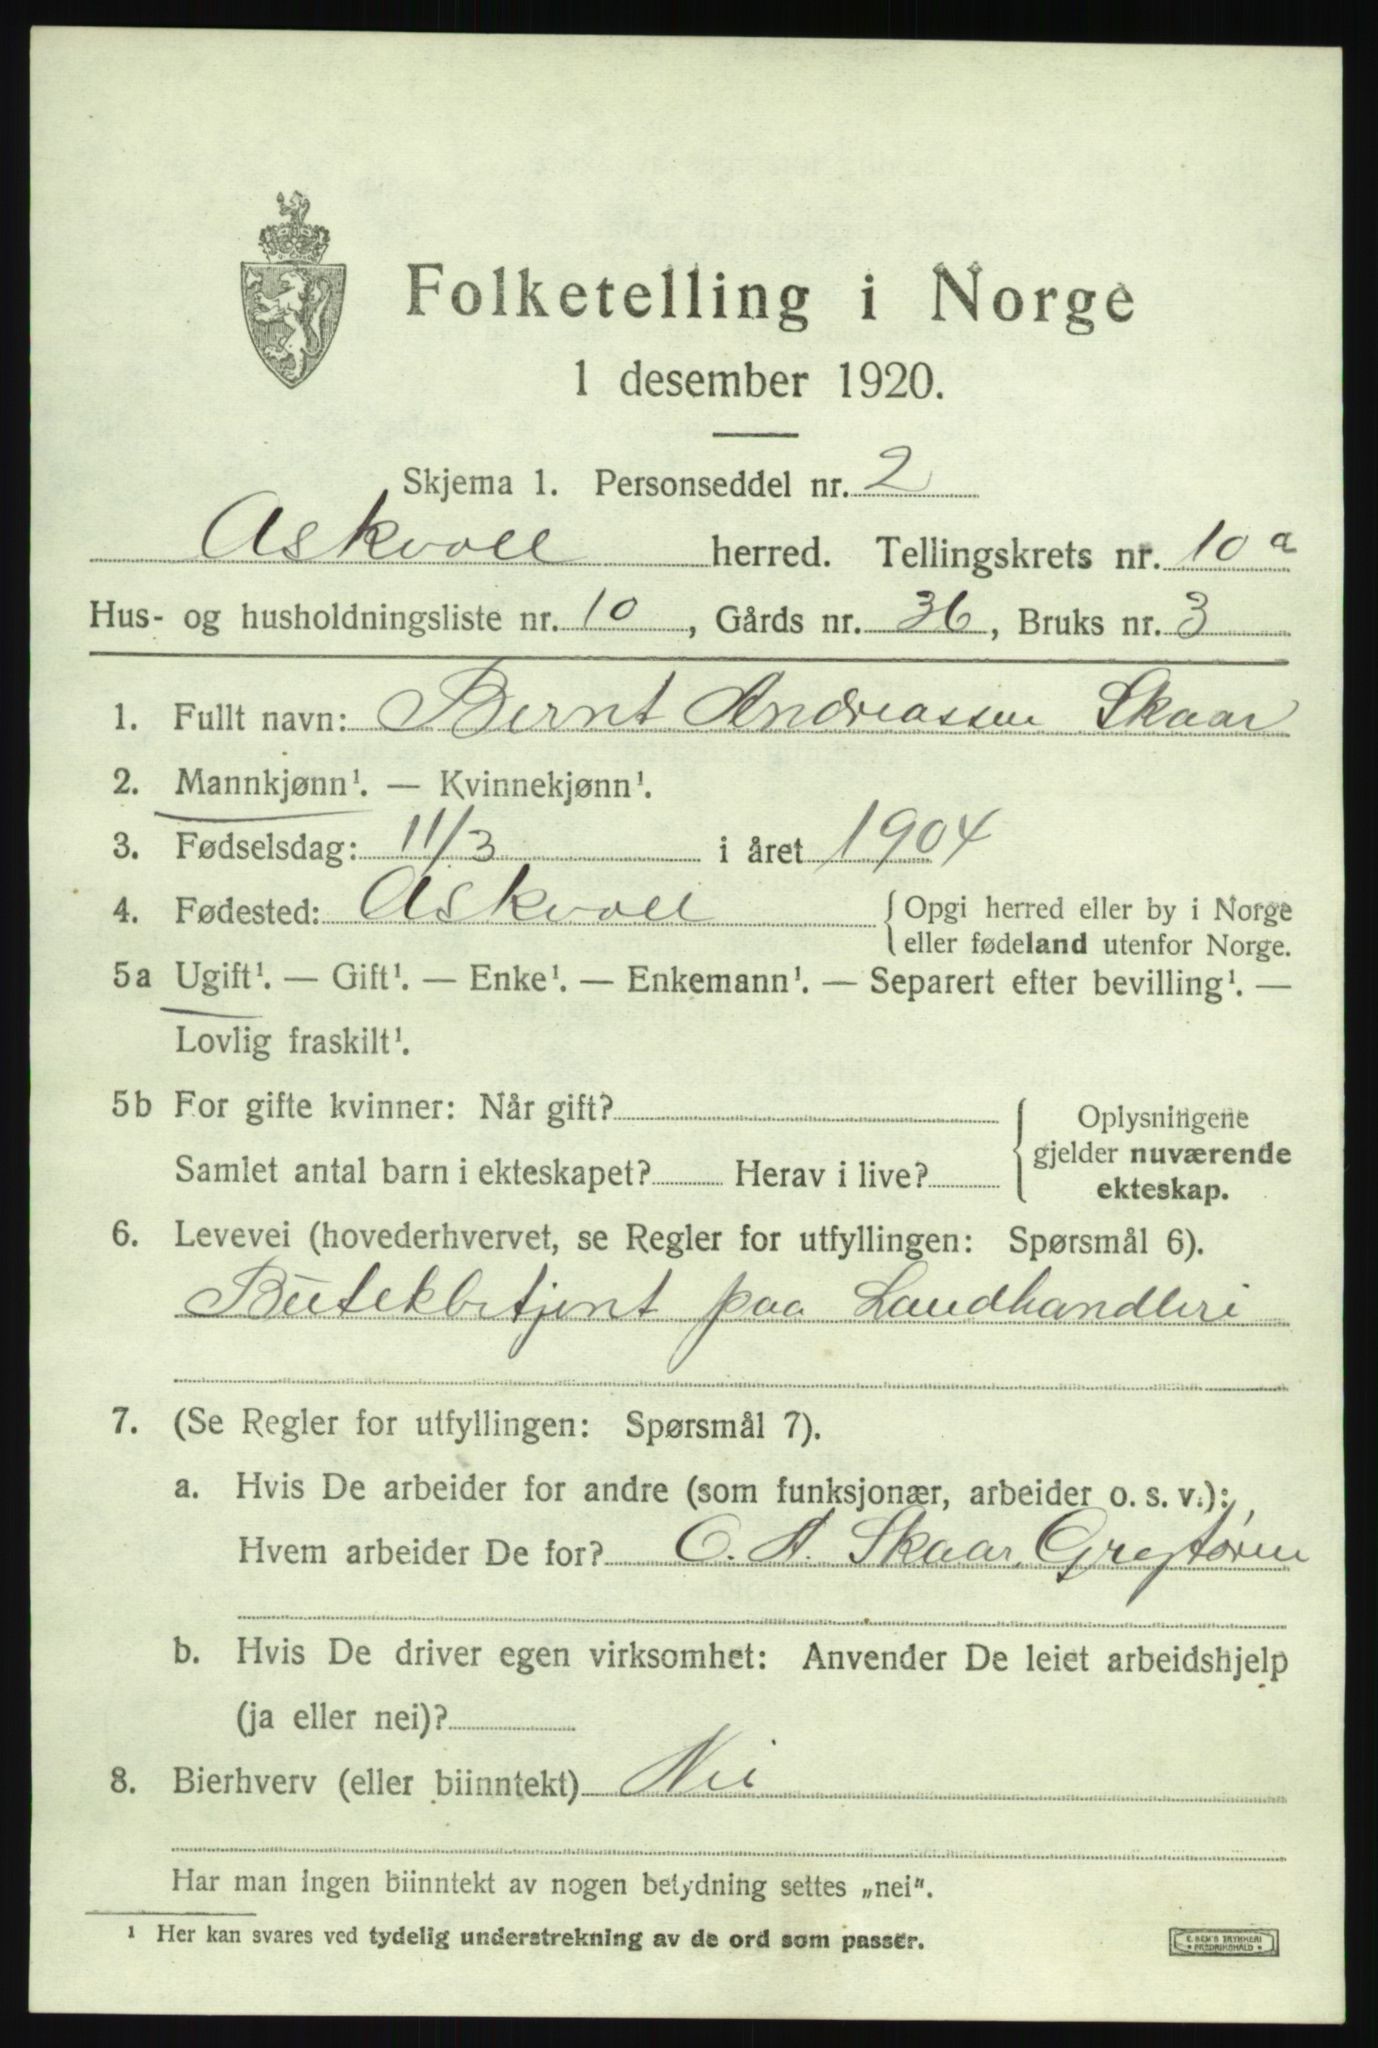 Folketelling i Norge
1 desember 1920.
Skjema 1. Personseddel nr. 2
Askvoll herred. Tellingskrets nr. 10 a
Hus- og husholdningsliste nr. 10, Gårds nr. 36, Bruks nr. 3
1. Fullt navn: Bernt Andreassen Skaar
2. Mannkjønn¹. — Kvinnekjønn¹.
3. Fødselsdag: 11/3 i året 1904
4. Fødested: Askvoll { Opgi herred eller by i Norge
eller fødeland utenfor Norge.
5a Ugift¹. — Gift¹. — Enke¹. — Enkemann¹. — Separert efter bevilling¹. —
Lovlig fraskilt¹.
5b For gifte kvinner: Når gift?
Samlet antal barn i ekteskapet? Herav i live?
{ Oplysningene
gjelder nuværende
ekteskap.
6. Levevei (hovederhvervet, se Regler for utfyllingen: Spørsmål 6).
Butekbetjent paa Landhandleri
7. (Se Regler for utfyllingen: Spørsmål 7).
a. Hvis De arbeider for andre (som funksjonær, arbeider o. s. v.):
Hvem arbeider De for? C. A. Skaar,
b. Hvis De driver egen virksomhet: Anvender De leiet arbeidshjelp
(ja eller nei)?
8. Bierhverv (eller biinntekt) Nei
Har man ingen biinntekt av nogen betydning settes „nei".
¹ Her kan svares ved tydelig understrekning av de ord som passer.